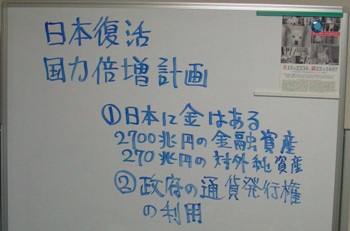 日本復活
国力倍増計画
①日本に金はある
2700兆円の金融資産
270兆円の対外純資産
②政府の通貨発行権
の利用